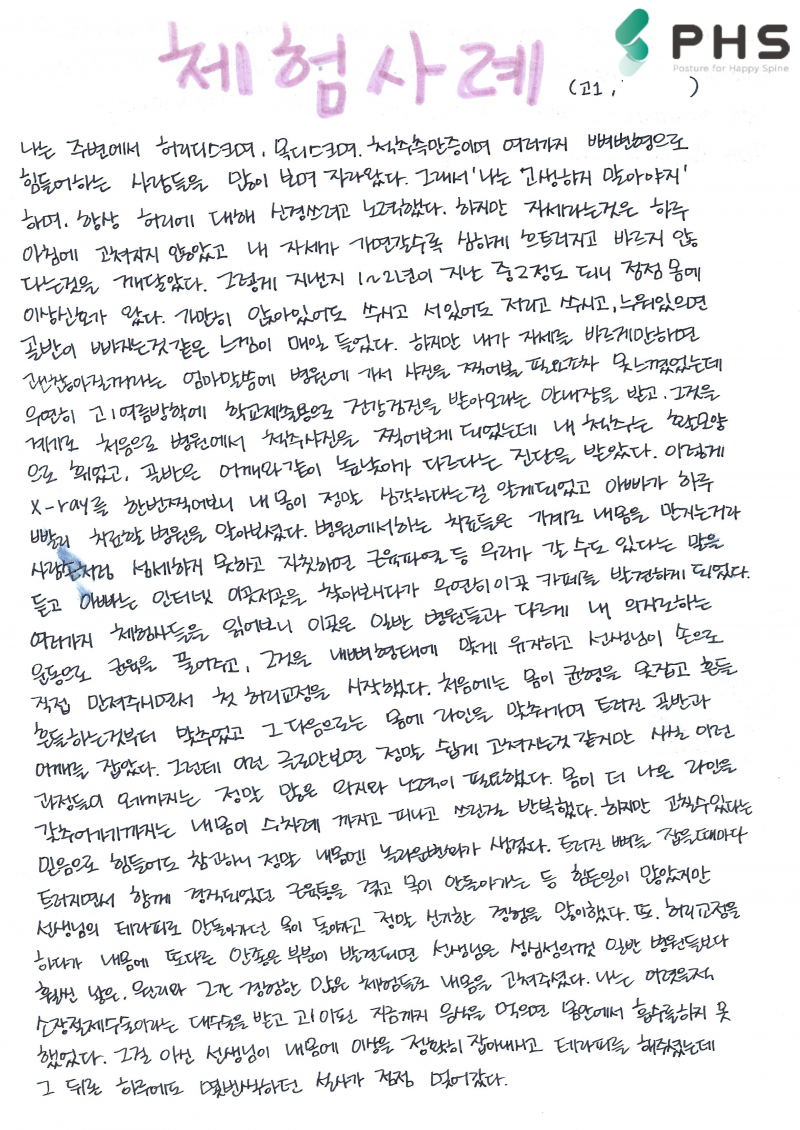 체험사례
PHS
Posture for Happy Spine
(고1, )
나는 주변에서 허리디스크며, 목디스크며, 척추측만증이며 여러가지 뼈변형으로
힘들어하는 사람들을 많이 보며 자라왔다. 그래서 '나는 고생하지 말아야지'
하며, 항상 허리에 대해 신경쓰려고 노력했다. 하지만 자세라는것은 하루
아침에 고쳐지지 않았고 내 자세가 가면갈수록 심하게 흐트러지고 바르지 않
다는것을 깨달았다. 그렇게 지낸지 1~2년이 지난 중2정도 되니 점점 몸에
이상신호가 왔다. 가만히 앉아있어도 쑤시고 서있어도 저리고 쑤시고, 누워있으면
골반이 빠지는것같은 느낌이 매일 들었다. 하지만 내가 자세를 바르게만하면
괜찮아질꺼라는 엄마말씀에 병원에 가서 사진을 찍어볼 필요조차 못느꼈었는데
우연히 고1여름방학에 학교제출용으로 건강검진을 받아오라는 안내장을 받고, 그것을
계기로 처음으로 병원에서 척추사진을 찍어보게 되었는데 내 척추는 활모양
으로 휘었고, 골반은 어깨와같이 높낮이가 다르다는 진단을 받았다. 이렇게
X-ray를 한번찍어보니 내몸이 정말 심각하다는걸 알게되었고 아빠가 하루
빨리 치료할 병원을 알아보셨다. 병원에서하는 치료들은 기계로 내몸을 만지는거라
사람손처럼 섬세하게 못하고 자칫하면 근육파열 등 무리가 갈 수도 있다는 말을
듣고 아빠는 인터넷 이곳저곳을 찾아보시다가 우연히 이곳 카페를 발견하게 되었다.
여러가지 체험사들을 읽어보니 이곳은 일반 병원들과 다르게 내 의지로하는
운동으로 근육을 풀어주고, 그것을 내뼈형태에 맞게 유지하고 선생님이 손으로
직접 만져주시면서 첫 허리교정을 시작했다. 처음에는 몸이 균형을 못잡고 흔들
흔들하는것부터 맞추었고 그 다음으로는 몸에 라인을 맞추어가며 틀어진 골반과
어깨를 잡았다. 그런데 이런 글로만보면 정말 쉽게 고쳐지는것 같지만 사실 이런
과정들이 오기까지는 정말 많은 의지와 노력이 필요했다. 몸이 더 나은 라인을
갖추어가기까지는 내몸이 수차례 까지고 피나고 쓰린걸 반복했다. 하지만 고칠수있다는
믿음으로 힘들어도 참고하니 정말 내몸엔 놀라운변화가 생겼다. 틀어진 뼈를 잡을때마다
틀어지면서 함께 경직되었던 근육통을 겪고 목이 안돌아가는 등 힘든일이 많았지만
선생님의 테라피로 안돌아가던 목이 돌아가고 정말 신기한 경험을 많이했다. 또, 허리교정을
하다가 내몸에 또다른 안좋은 부분이 발견되면 선생님은 성심성의껏 일반 병원들보다
훨씬 낳은, 원리와 그간 경험한 많은 체험들로 내몸을 고쳐주셨다. 나는 어렸을적
소장절제수술이라는 대수술을 받고 고1이된 지금까지 음식을 먹으면 몸안에서 흡수를하지 못
했었다. 그걸 아신 선생님이 내몸에 이상을 정확히 잡아내시고 테라피를 해주셨는데
그 뒤로 하루에도 몇번씩하던 설사가 점점 멎어갔다.